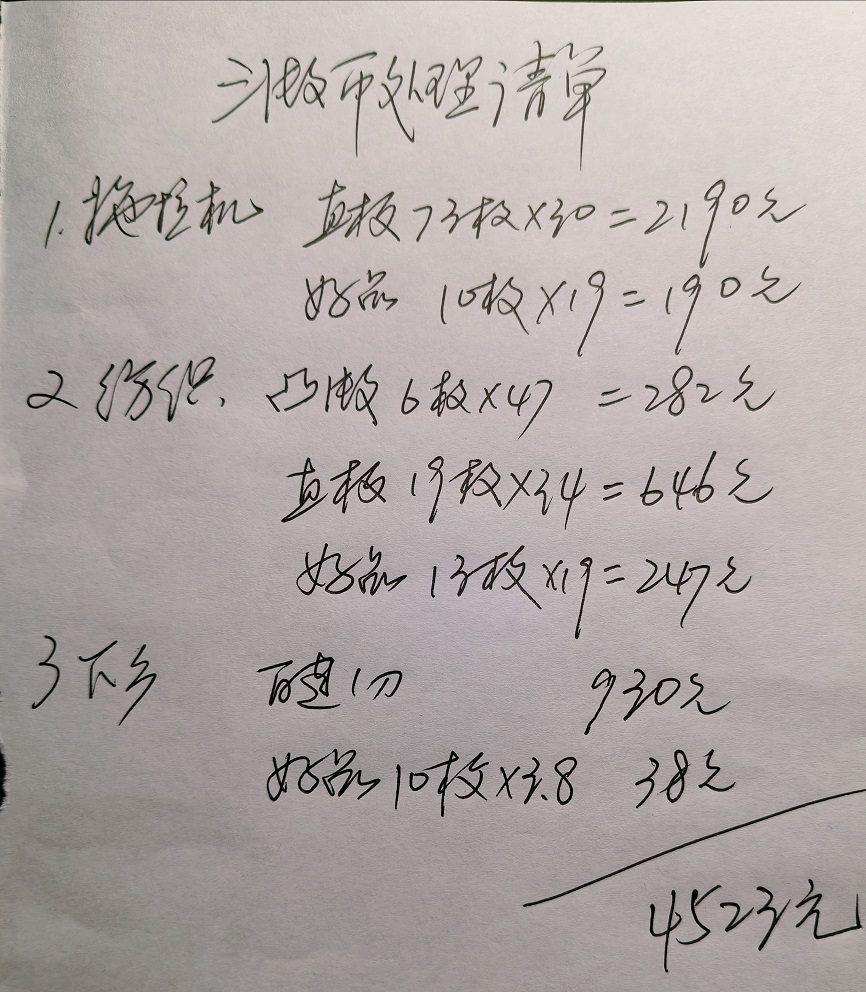 三版币处理清单
1.拖拉机 直板73枚×30=2190元
好品 10枚×19=190元
2纺织、凸版6枚×47 =282元
直板19枚×34=646元
好品13枚×19=247元
3下乡 百连1刀 930元
好品10枚×3.8 38元
4523元